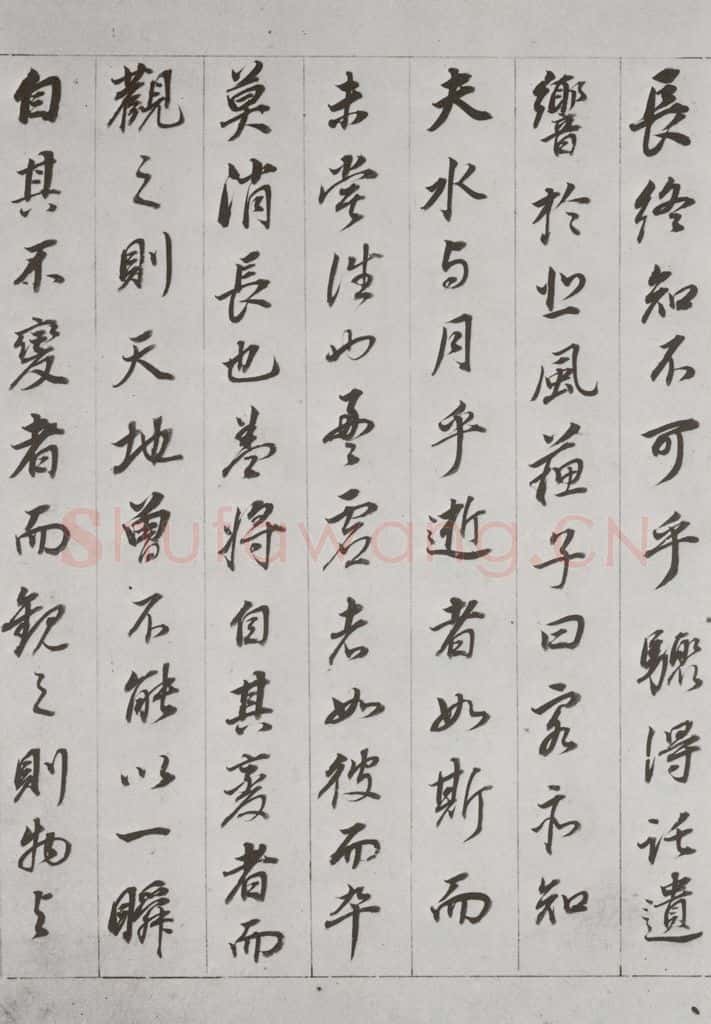 長終知不可乎驟得託遺
響於悲風蘇子曰客亦知
夫水与月乎逝者如斯而
未嘗往也盈虛者如彼而卒
莫消長也蓋將自其變者而
觀之則天地曾不能以一瞬
自其不變者而觀之則物与
Shufawang.CN